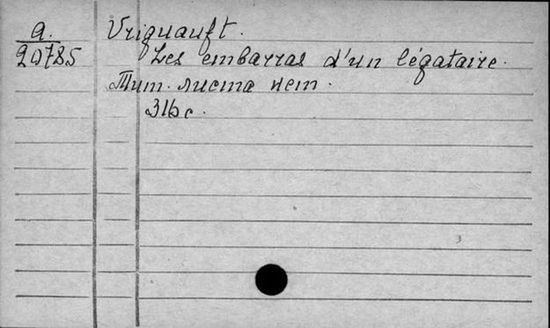 a.
20785
Vrignault.
Les embarras d'un légataire.
Тит. листа нет.
316 с.